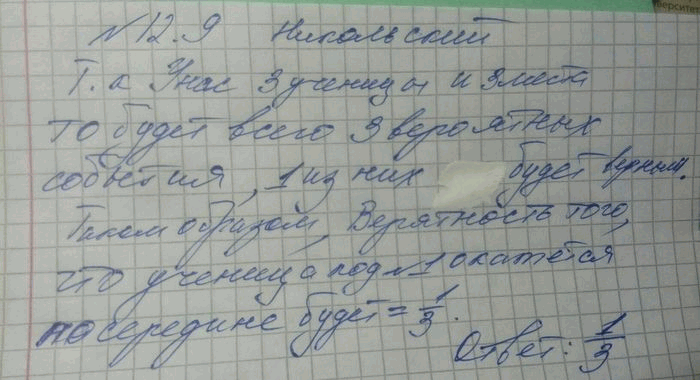 верситет
№12.9 Никольский
Т.к У нас 3 ученицы и 3 места
то будет всего 3 вероятных
события, 1 из них будет верным.
Таком образом, Верятность того,
что ученица под №1 окажется
посередине будет = 1/3.
Ответ: 1/3